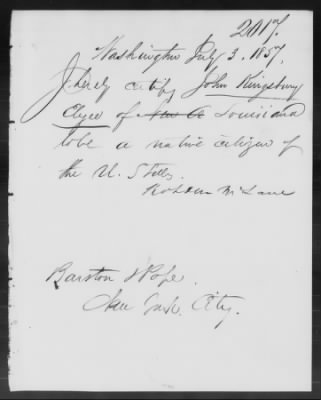 2017.
Washington July 3. 1857.
I hereby certify John Kingsbury
of New O Louisiana
to be a native citizen of
the U. States.
Robt M. McLane
Barston & Pope.
New York. City.